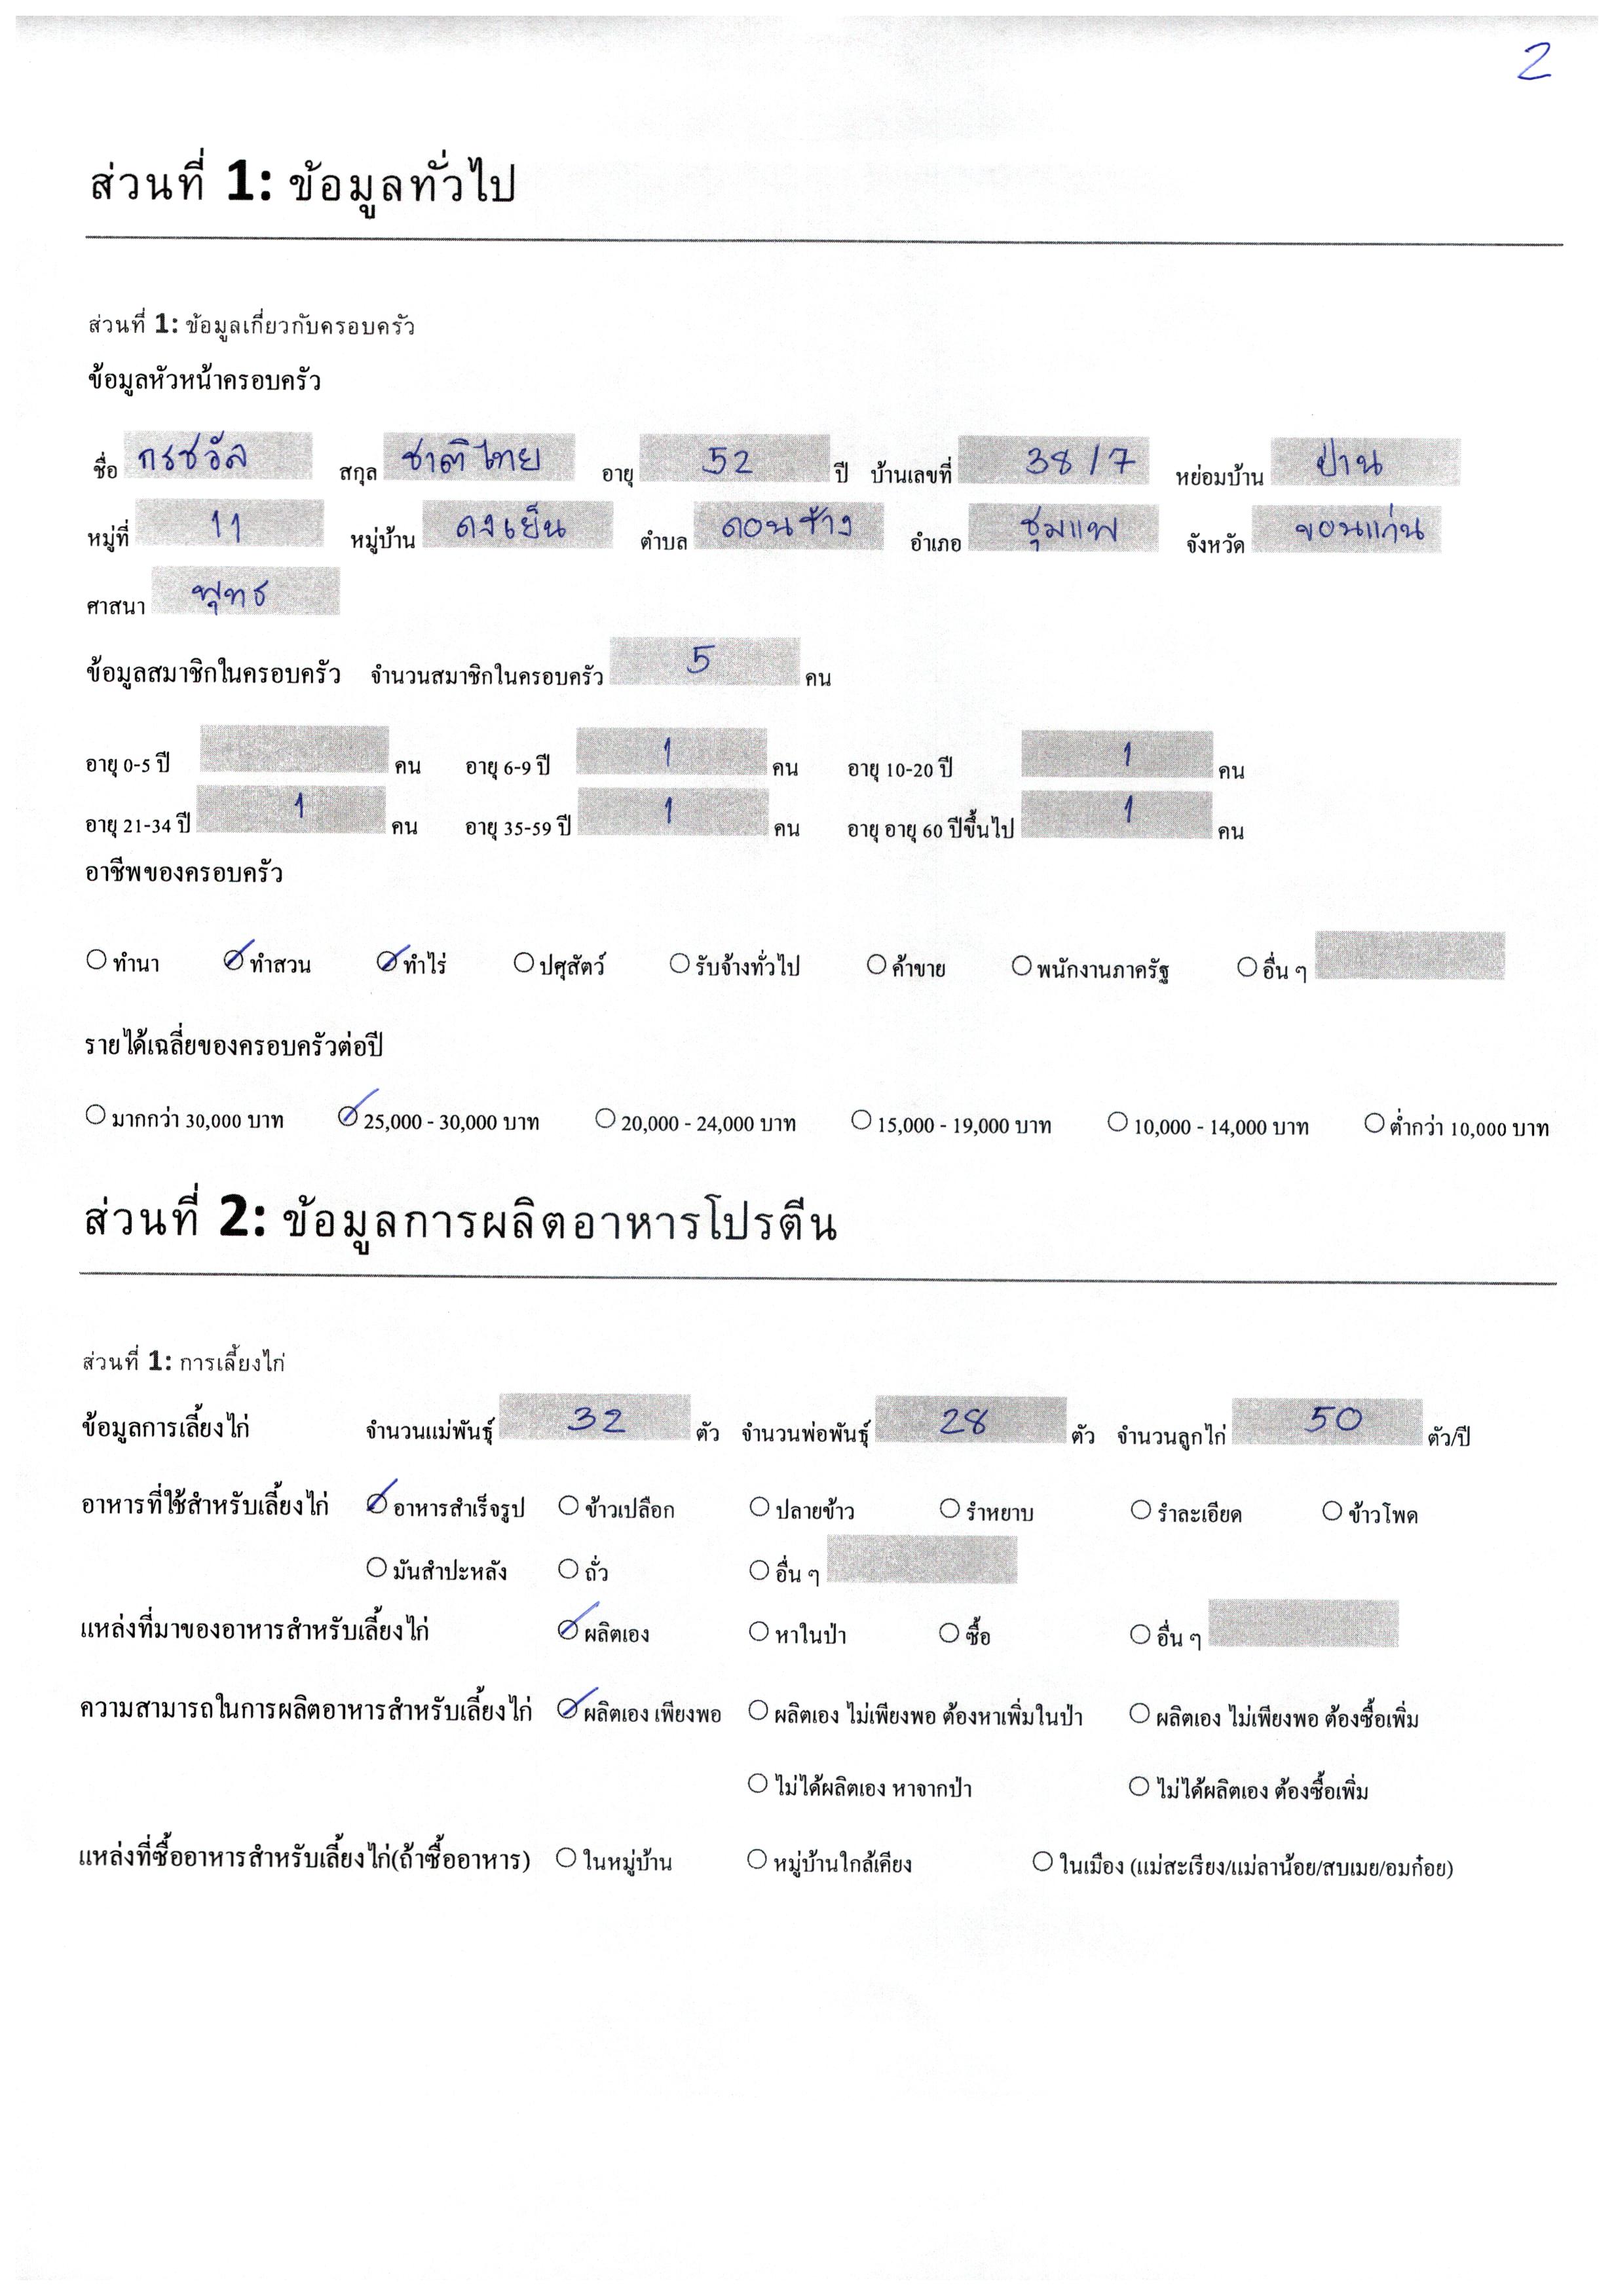 2
ส่วนที่ 1: ข้อมูลทั่วไป
ส่วนที่ 1: ข้อมูลเกี่ยวกับครอบครัว
ข้อมูลหัวหน้าครอบครัว
ชื่อ กรชวัล สกุล ชาติไทย อายุ 52 ปี บ้านเลขที่ 38/7 หย่อมบ้าน ป่าน
หมู่ที่ 11 หมู่บ้าน ดงเย็น ตำบล ดอนช้าง อำเภอ ชุมแพ จังหวัด ขอนแก่น
ศาสนา พุทธ
ข้อมูลสมาชิกในครอบครัว จำนวนสมาชิกในครอบครัว 5 คน
อายุ 0-5 ปี คน อายุ 6-9 ปี 1 คน อายุ 10-20 ปี 1 คน
อายุ 21-34 ปี 1 คน อายุ 35-59 ปี 1 คน อายุ อายุ 60 ปีขึ้นไป 1 คน
อาชีพของครอบครัว
ทำนา ทำสวน ทำไร่ ปศุสัตว์ รับจ้างทั่วไป ค้าขาย พนักงานภาครัฐ อื่น ๆ
รายได้เฉลี่ยของครอบครัวต่อปี
มากกว่า 30,000 บาท 25,000 - 30,000 บาท 20,000 - 24,000 บาท 15,000 - 19,000 บาท 10,000 - 14,000 บาท ต่ำกว่า 10,000 บาท
ส่วนที่ 2: ข้อมูลการผลิตอาหารโปรตีน
ส่วนที่ 1: การเลี้ยงไก่
ข้อมูลการเลี้ยงไก่ จำนวนแม่พันธุ์ 32 ตัว จำนวนพ่อพันธุ์ 28 ตัว จำนวนลูกไก่ 50 ตัว/ปี
อาหารที่ใช้สำหรับเลี้ยงไก่ อาหารสำเร็จรูป ข้าวเปลือก ปลายข้าว รำหยาบ รำละเอียด ข้าวโพด
มันสำปะหลัง ถั่ว อื่น ๆ
แหล่งที่มาของอาหารสำหรับเลี้ยงไก่ ผลิตเอง หาในป่า ซื้อ อื่น ๆ
ความสามารถในการผลิตอาหารสำหรับเลี้ยงไก่ ผลิตเอง เพียงพอ ผลิตเอง ไม่เพียงพอ ต้องหาเพิ่มในป่า ผลิตเอง ไม่เพียงพอ ต้องซื้อเพิ่ม
ไม่ได้ผลิตเอง หาจากป่า ไม่ได้ผลิตเอง ต้องซื้อเพิ่ม
แหล่งที่ซื้ออาหารสำหรับเลี้ยงไก่(ถ้าซื้ออาหาร) ในหมู่บ้าน หมู่บ้านใกล้เคียง ในเมือง (แม่สะเรียง/แม่ลาน้อย/สบเมย/อมก๋อย)